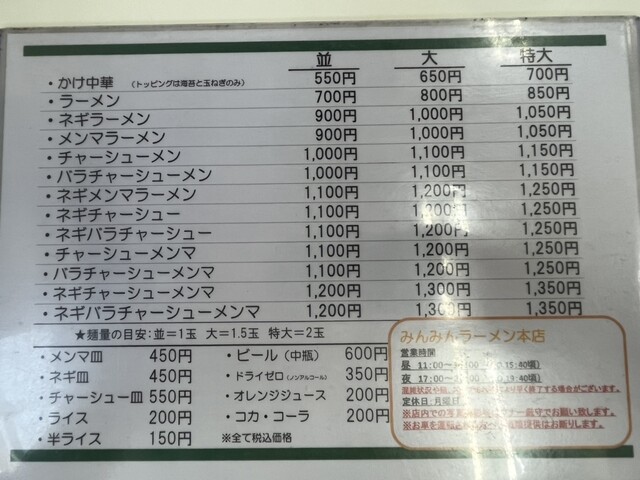 並 大 特大
・かけ中華 (トッピングは海苔と玉ねぎのみ) 550円 650円 700円
・ラーメン 700円 800円 850円
・ネギラーメン 900円 1,000円 1,050円
・メンマラーメン 900円 1,000円 1,050円
・チャーシューメン 1,000円 1,100円 1,150円
・バラチャーシューメン 1,000円 1,100円 1,150円
・ネギメンマラーメン 1,100円 1,200円 1,250円
・ネギチャーシュー 1,100円 1,200円 1,250円
・ネギバラチャーシュー 1,100円 1,200円 1,250円
・チャーシューメンマ 1,100円 1,200円 1,250円
・バラチャーシューメンマ 1,100円 1,200円 1,250円
・ネギチャーシューメンマ 1,200円 1,300円 1,350円
・ネギバラチャーシューメンマ 1,200円 1,300円 1,350円
★麺量の目安:並=1玉 大=1.5玉 特大=2玉
・メンマ皿 450円
・ネギ皿 450円
・チャーシュー皿 550円
・ライス 200円
・半ライス 150円
・ビール (中瓶) 600円
・ドライゼロ (ノンアルコール) 350円
・オレンジジュース 200円
・コカ・コーラ 200円
※全て税込価格
みんみんラーメン本店
営業時間
昼 11:00~ 15:40頃)
夜 17:00~ 19:40頃)
混雑状況や 早く終了する場合がございます。
定休日:月曜日
※店内での写真 マナー厳守でお願い致します。
※お車を運転 酒類提供はお断りします。